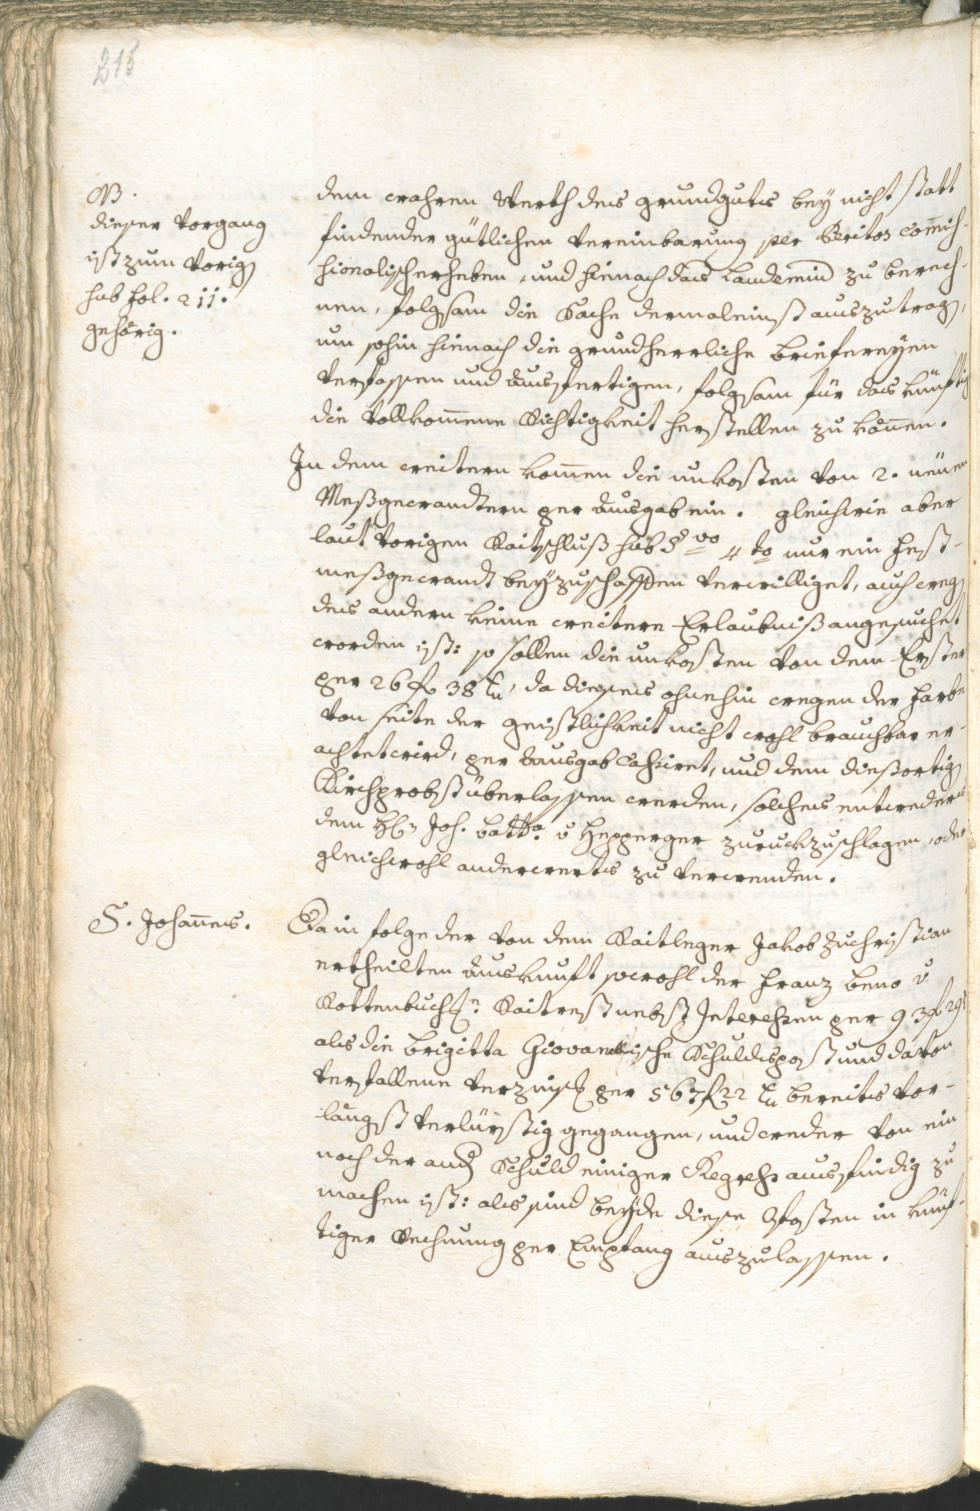 215
NB.
dieser Vorgang
ist zum vorig
hab fol. 211.
gehörig.
dem wahren Werth des grundguts bey nicht statt
findender gütlichen Vereinbarung per Peritos com̄is-
sionalisch erheben, und hienach das Laudemia zu berech-
nen, folgsam die Sache dermaleinst auszutrag,
um sohin hienach die grundherrliche briefereyen
verfassen und ausfertigen, folgsam für das künftig
die vollkom̄ene Richtigkeit herstellen zu kön̄en.
In dem weitern kom̄en die unkosten von 2. neuen
Meßgewandtern per ausgab ein. gleichwie aber
laut vorigen Raitschluß sub §vo 4to nur ein Fest-
meßgewandt beyzuschaffen verwilliget, auch weg
des andern keine weitere Erlaubniß angesuchet
worden ist: so sollen die unkosten von dem Erster
per 26 f 38 kr, da dieses ohnehin wegen der farbe
von seite der geistlichkeit nicht wohl brauchbar er-
achtet wird, per ausgab cassiret, und dem dießortig
Kirchprobst überlassen werden, solches entweders
dem H. Joh. Batta v Hepperger zuruckzuschlagen, oder
gleichwohl anderwerts zu verwenden.
S. Johan̄es.
Da in folge der von dem Raitleger Jakob Zuchristian
ertheilten auskunft sowohl der Franz Beno v
Rottenbuch Raitrest nebst Interessen per 93 f 29
als die Brigitta Giovanellische Schuldspost und davon
verfallene Verzinß per 567 f 22 kr bereits vor-
längst verlürstig gegangen, und weder von ein
noch der and Schuld einiger Regress ausfindig zu
machen ist: als sind beyde diese Posten in künf-
tiger Rechnung per Empfang auszulassen.